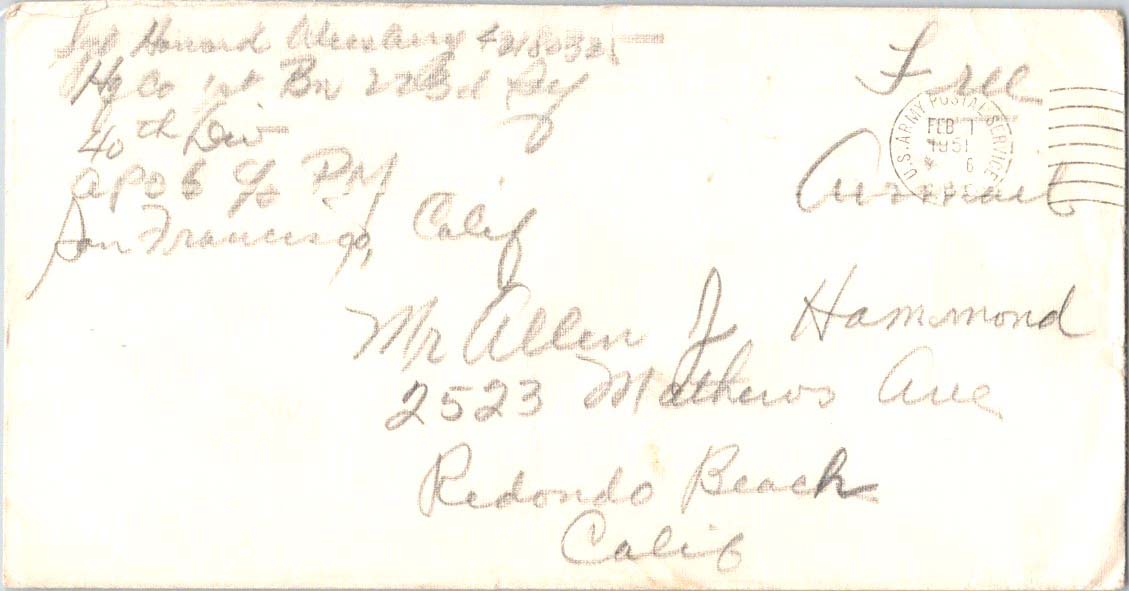 Howard
Hq Co 1st Bn 223d
40th Div
APO 6 c/o PM
San Francisco, Calif
Free
Airmail
U.S. ARMY POSTAL SERVICE
FEB 1
1951
6
Mr Allen J Hammond
2523 Mathews Ave
Redondo Beach
Calif